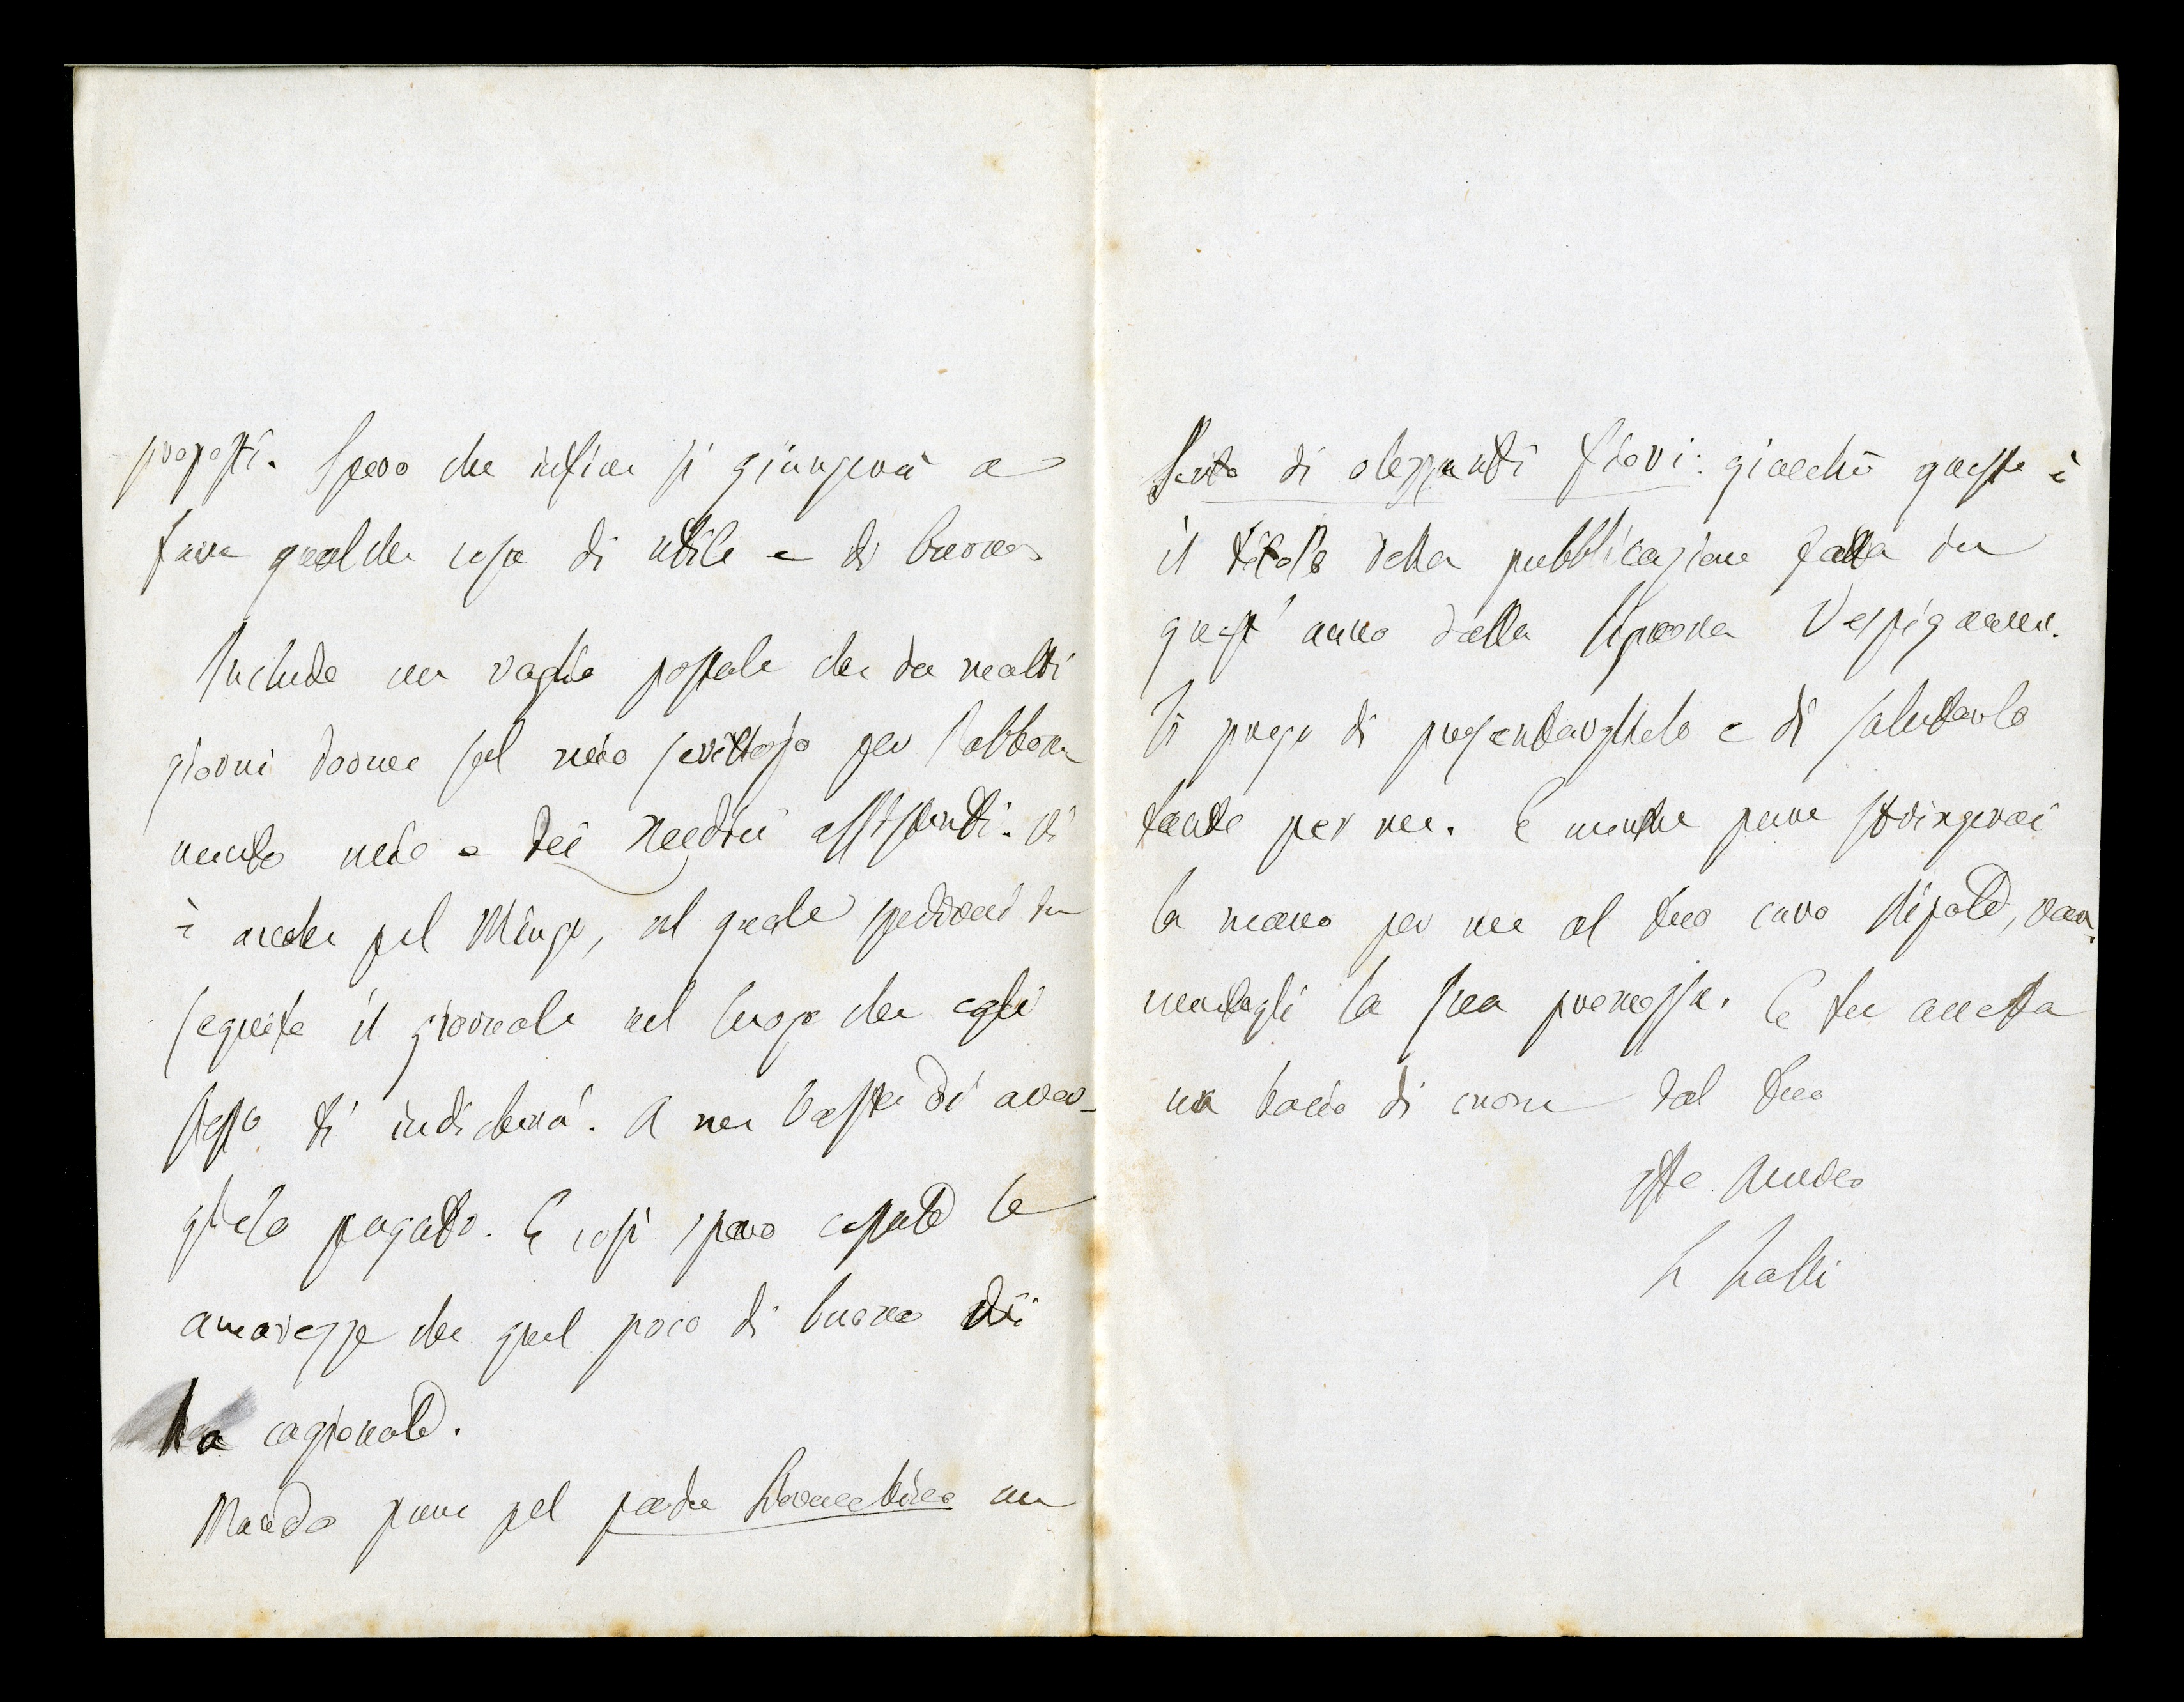 proposti. Spero che infine si giungerà a
fare qualche cosa di utile e di buono.
Includo un vaglia postale che da molti
giorni dorme sul mio scrittojo per l'abbona
mento mio e dei medici assistenti. Vi
è anche pel Mingo, al quale spedirai in
seguito il giornale nel luogo che egli
stesso ti indicherà. A me basta di aver-
glielo pagato. E così spero cessate le
amarezze che quel poco di buono di
ha cagionato.
Mando pure pel padre un
Serto di olezzanti fiori: giacchè questo è
il titolo della pubblicazione fatta in
quest' anno dalla Signora Vespignani.
Ti prego di presentarglielo e di salutarlo
tanto per me. E mentre pure stringerai
la mano per me al tuo caro nipote, ram.
mentagli la sua promessa. E tu accetta
un bacio di cuore dal tuo
Amico